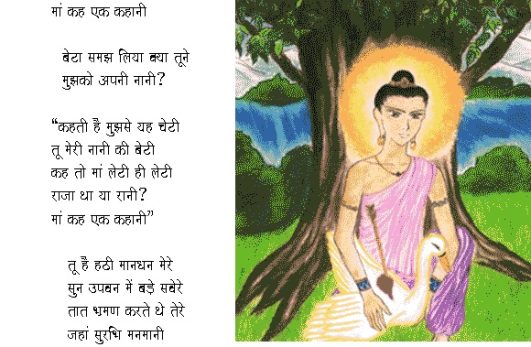 मां कह एक कहानी
बेटा समझ लिया क्या तूने
मुझको अपनी नानी?
“कहती है मुझसे यह चेटी
तू मेरी नानी की बेटी
कह तो मां लेटी ही लेटी
राजा था या रानी?
मां कह एक कहानी”
तू है हठी मानधन मेरे
सुन उपवन में बड़े सवेरे
तात भ्रमण करते थे तेरे
जहां सुरभि मनमानी